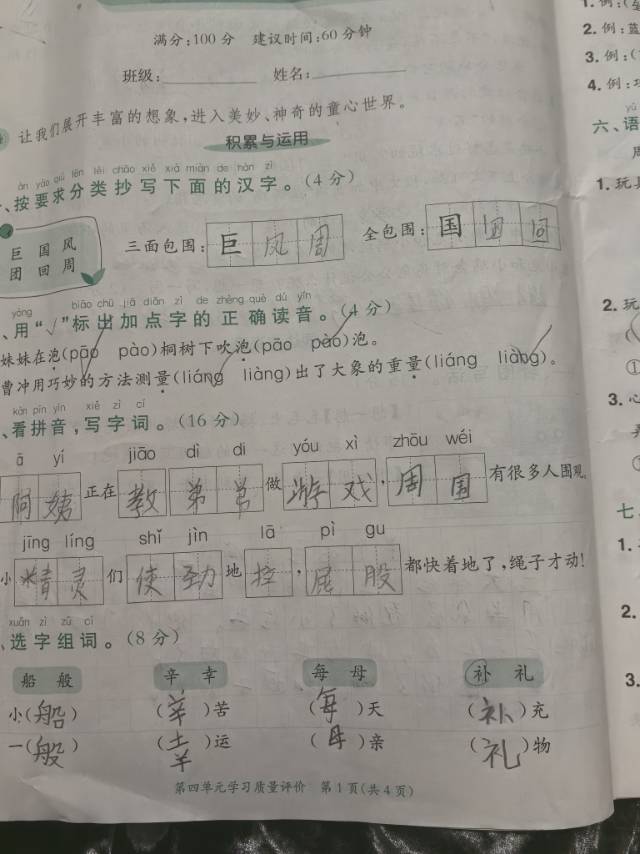 满分:100分 建议时间:60分钟
班级: 姓名:
让我们展开丰富的想象,进入美妙、神奇的童心世界。
积累与运用
àn yāo qiú fēn lèi chāo xiě xià miàn de hàn zì
、按要求分类抄写下面的汉字。(4分)
巨 国 风
团 回 周
三面包围: 巨 风 周
全包围: 国 回
yòng biāo chū jiā diǎn zì de zhèng què dú yīn
、用“√”标出加点字的正确读音。(4分)
妹妹在泡(pāo pào)桐树下吹泡(pāo pào)泡。
曹冲用巧妙的方法测量(liáng liàng)出了大象的重量(liáng liàng)。
kàn pīn yīn xiě zì cí
、看拼音,写字词。(16分)
ā yí jiāo dì di yóu xì zhōu wéi
阿 姨 正在 教 弟 弟 做 游 戏 , 周 围 有很多人围观
jīng líng shǐ jìn lā pì gu
小 精 灵 们 使 劲 地 , 屁 股 都快着地了,绳子才动!
xuǎn zì zǔ cí
、选字组词。(8分)
船 般 辛 幸 每 母 补 礼
小(船) (辛)苦 (每)天 (补)充
一(般) (幸)运 (母)亲 (礼)物
第四单元学习质量评价 第1页(共4页)
1.例:(
2.例:蓝
3.例:(
4.例:
六、语
1.玩具
2.玩
①
3.心
七
1.
2.
3.